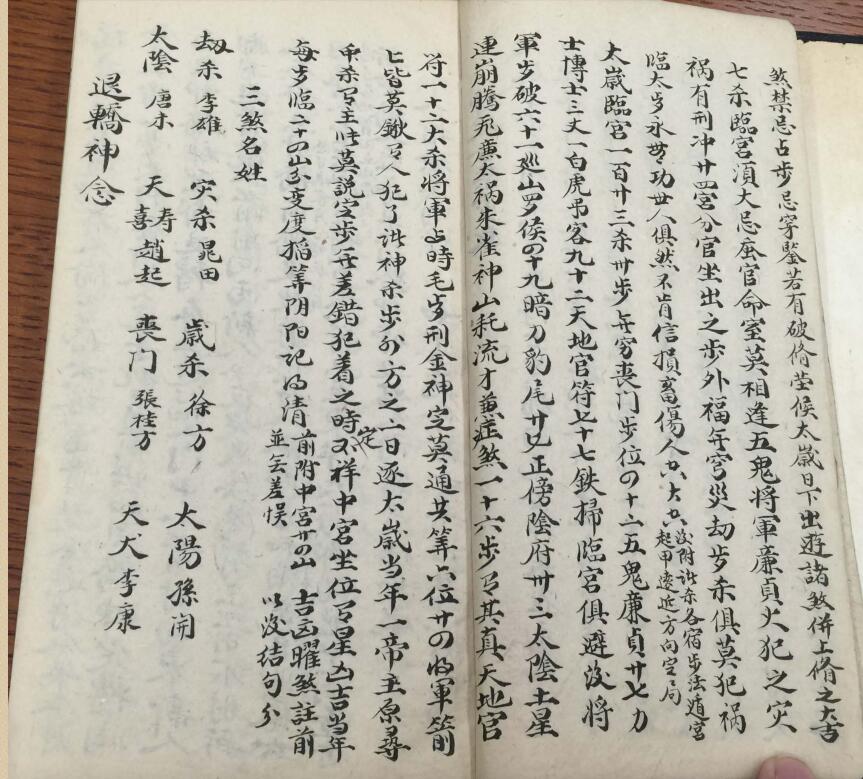 煞禁忌占步忌穿鑿若有破脩塋候太歲日下出遊諸煞併上脩之大吉
七杀臨宮湏大忌蚕官命室莫相逢五鬼將軍廉貞火犯之灾
祸有刑冲廿四宮分官坐出之步外福無穹災劫步杀俱莫犯祸
臨太岁永無功世人俱然不肯信損畜傷人
六大六
沒附許杀各宿步法遁宮
起甲遠近方向定局
太歲臨官一百廿三杀卅步無穷喪门步位四十二五鬼廉貞廿七力
士博士三丈一白虎吊客九十二天地官符七十七鉄掃臨宮俱避没將
軍步破六十一廵山罗侯四十九暗刀豹尾廿七正傍陰府卅三太陰土星
連崩騰死廉太祸朱雀神山耗流才煞一十六步其真天地官
符一十二大杀將軍占時毛岁刑金神定莫通共筭六位廿四將軍箭
七皆莫鍬人犯了此神杀步外方之一日逐太歲当年一帝主原尋
千杀主此莫說定步無差錯犯着之時定不祥中宮坐位星凶吉当年
每岁臨二十四山分变度掐筭阴阳記得清
前附中宮廿四山
並無差悮
吉凶曜煞註前
以沒結句分
三煞名姓
劫杀 李雄 灾杀 晁田 歲杀 徐方 太陽 孫開
太陰 唐木 天喜 寿趙起 喪门 張桂方 天犬 李康
退轎神念